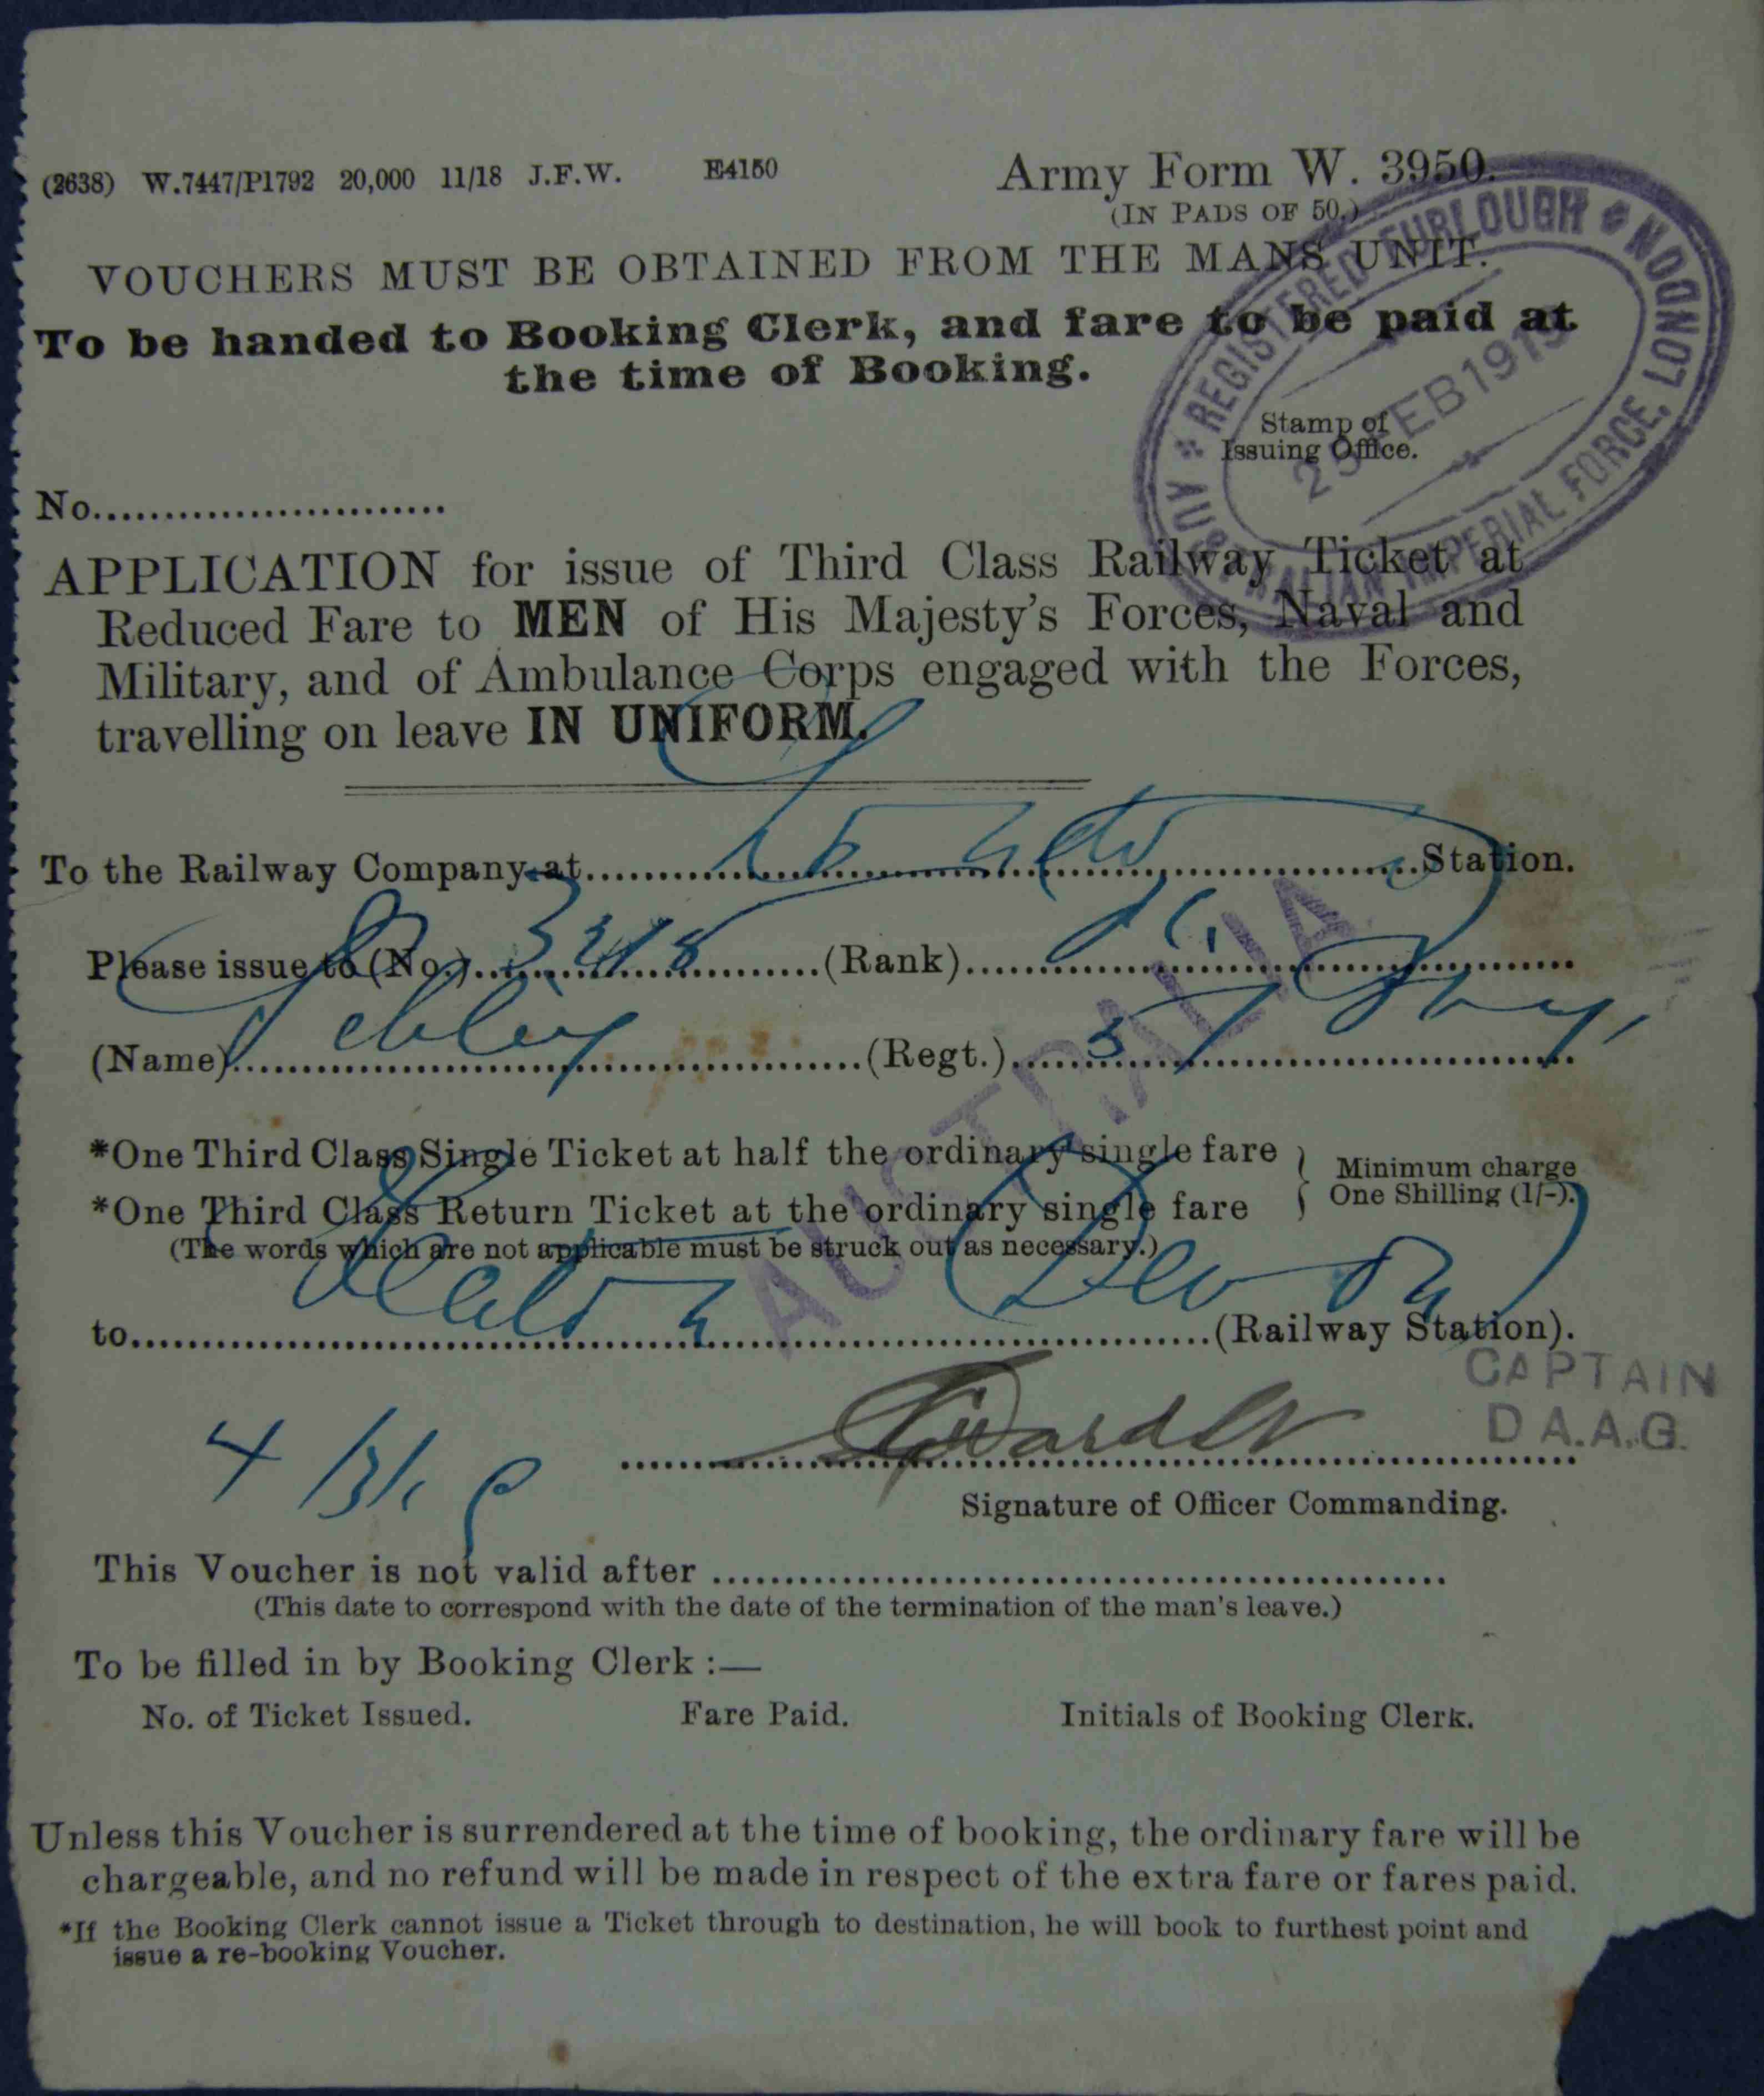 (2638) W.7447/P1792 20,000 11/18 J.F.W. E4150
Army Form W. 3950.
(IN PADS OF 50.)
VOUCHERS MUST BE OBTAINED FROM THE MANS UNIT.
To be handed to Booking Clerk, and fare to be paid at
the time of Booking.
REGISTERED FURLOUGH LONDON
AUSTRALIAN IMPERIAL FORCE,
FEB 1919
Stamp of
Issuing Office.
No.
APPLICATION for issue of Third Class Railway Ticket at
Reduced Fare to MEN of His Majesty's Forces, Naval and
Military, and of Ambulance Corps engaged with the Forces,
travelling on leave IN UNIFORM.
To the Railway Company at Station.
Please issue to (No.) 3218 (Rank)
(Name) (Regt.) 57
AUSTRALIA
*One Third Class Single Ticket at half the ordinary single fare
*One Third Class Return Ticket at the ordinary single fare
Minimum charge
One Shilling (1/-).
(The words which are not applicable must be struck out as necessary.)
to (Devon) (Railway Station).
CAPTAIN
D A.A.G.
4/3/19
Signature of Officer Commanding.
This Voucher is not valid after
(This date to correspond with the date of the termination of the man's leave.)
To be filled in by Booking Clerk :—
No. of Ticket Issued. Fare Paid. Initials of Booking Clerk.
Unless this Voucher is surrendered at the time of booking, the ordinary fare will be
chargeable, and no refund will be made in respect of the extra fare or fares paid.
*If the Booking Clerk cannot issue a Ticket through to destination, he will book to furthest point and
issue a re-booking Voucher.